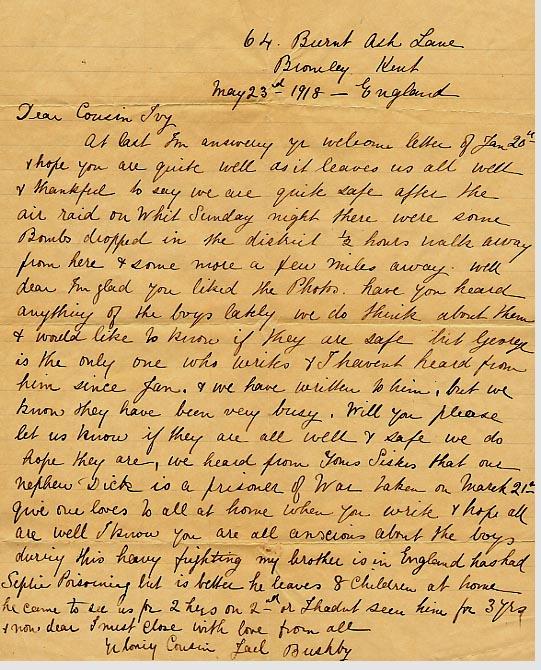 64. Burnt Ash Lane
Bromley Kent
May 23rd 1918 – England
Dear Cousin Ivy
At last I'm answering yr welcome letter of Jan 20th
& hope you are quite well as it leaves us all well
& thankful to say we are quite safe after the
air raid on Whit Sunday night there were some
Bombs dropped in the district ½ hours walk away
from here & some more a few miles away. well
dear I'm glad you liked the Photos. have you heard
anything of the boys lately we do think about them
& would like to know if they are safe but George
is the only one who writes & I havent heard from
him since Jan. & we have written to him, but we
know they have been very busy. Will you please
let us know if they are all well & safe we do
hope they are, we heard from Toms Sister that our
nephew Dick is a prisoner of War taken on March 21st
give our loves to all at home when you write & hope all
are well I know you are all anxious about the boys
during this heavy fighting my brother is in England has had
Septic Poisoning but is better he leaves 8 Children at home
he came to see us for 2 hrs on 2nd or I hadnt seen him for 3 yrs
& now dear I must close with love from all
Cousin Bushby